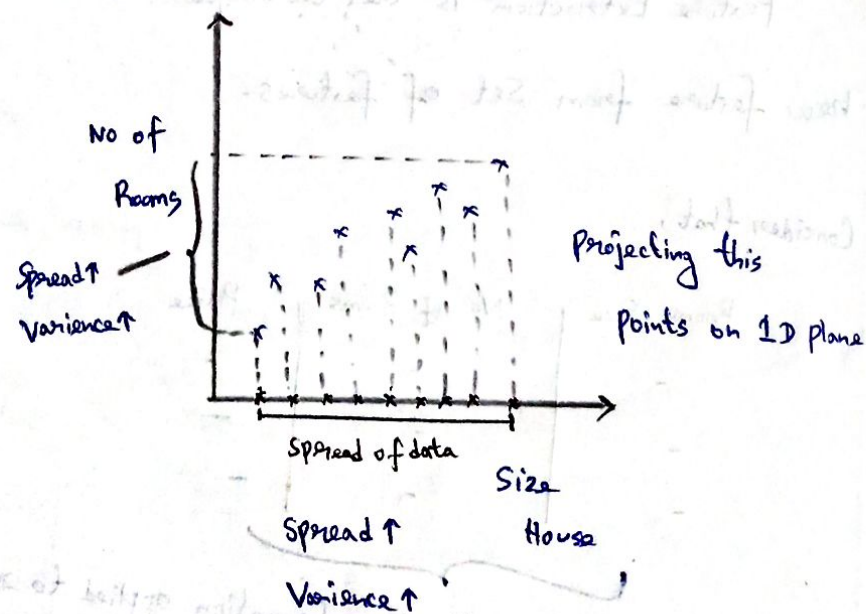 No of
Rooms
Spread↑
Varience↑
Projecting this
Points on 1D plane
Spread of data
Size
House
Spread ↑
Varience ↑